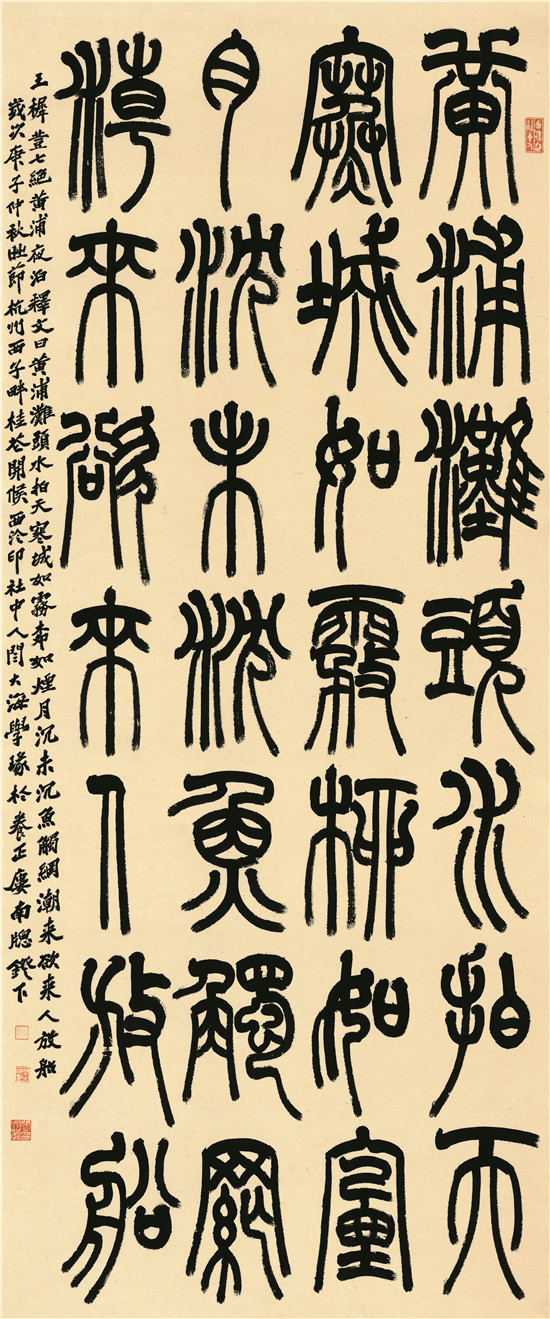 黄浦灘頭水拍天
寒城如霧柳如煙
月沈未沈魚觸網
潮來欲來人放船
王穉登七絕黄浦夜泊釋文曰黄浦灘頭水拍天寒城如霧如煙月沉未沉魚觸網潮来欲来人放船
歲次庚子仲秋時節杭州西子畔桂花開候西泠印社中人閆大海學瑑於養正廔南牕鐙下